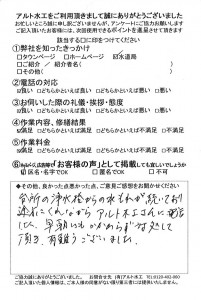 アルト水工をご利用頂きまして誠にありがとうございました
お忙しいところ誠に申し訳ございませんが、アンケートにご協力お願いします
ご記入頂いたお客様には、次回使用できるポイントを進呈させて頂きます
該当する□に印をつけてください
①弊社を知ったきっかけ
□タウンページ □ホームページ ☑水道局
□ご紹介(ご紹介者名 )
□その他( )
②電話の対応
☑良い □どちらかといえば良い □どちらかといえば悪い □悪い
③お伺いした際の礼儀・挨拶・態度
☑良い □どちらかといえば良い □どちらかといえば悪い □悪い
④作業内容、修繕結果
☑満足 □どちらかといえば満足 □どちらかといえば不満足 □不満足
⑤作業料金
☑満足 □どちらかといえば満足 □どちらかといえば不満足 □不満足
⑥「お客様の声」として掲載しても宜しいでしょうか
☑区名・名字でOK □匿名でOK □不可
◆その他、良かった点悪かった点、ご意見ご感想をお聞かせください
台所の浄水栓からの水もれが続いており
アルト水工さんに電話
した、早朝にもかかわらず対処して
頂き、有難うございました。
誠にありがとうございました。 お問合せ先 (有)アルト水工
ご協力ありがとうございました。